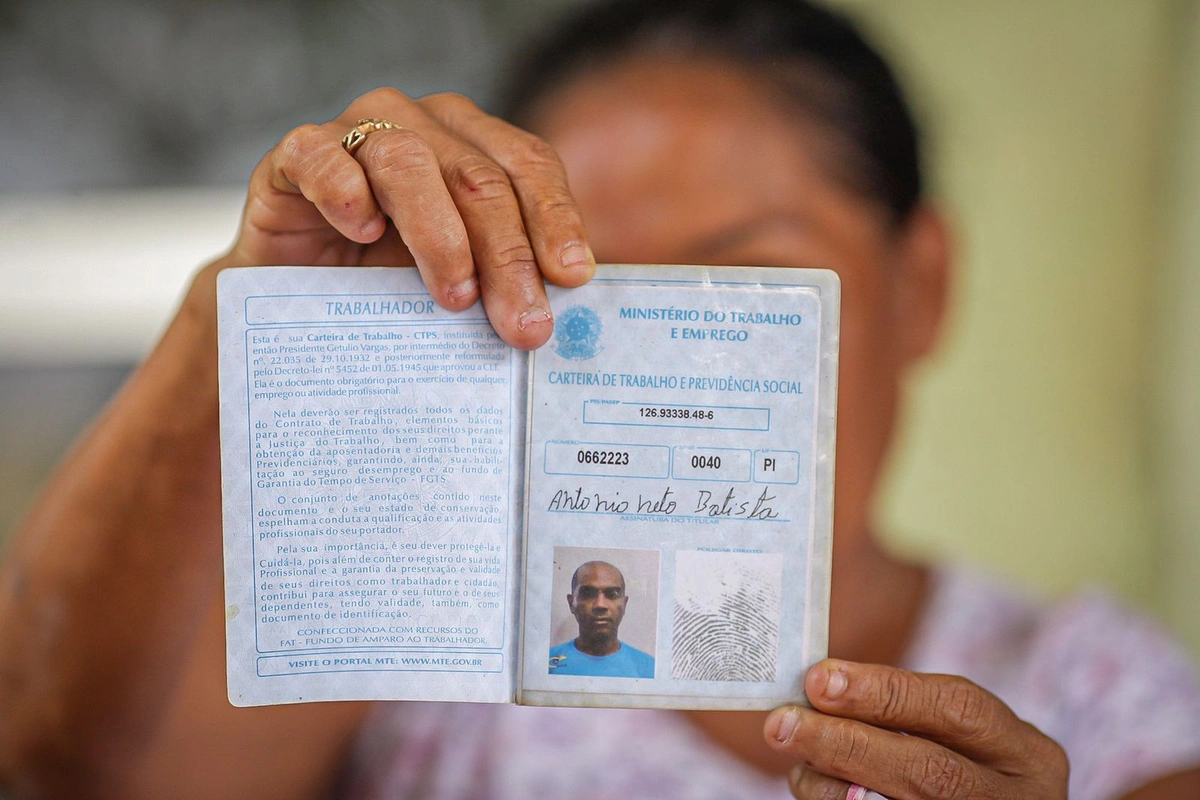 TRABALHADOR
Esta é sua Carteira de Trabalho - CTPS, instituída
então Presidente Getulio Vargas, por intermédio do Decreto
nº. 22.035 de 29.10.1932 e posteriormente reformulada
pelo Decreto-lei nº 5452 de 01.05.1945 que aprovou a CLT.
Ela é o documento obrigatório para o exercício de qualquer
emprego ou atividade profissional.
Nela deverão ser registrados todos os dados
do Contrato de Trabalho, elementos básicos
para o reconhecimento dos seus direitos perante
a Justiça do Trabalho, bem como para a
obtenção da aposentadoria e demais benefícios
Previdenciários, garantindo, ainda, sua habili-
tação ao seguro desemprego e ao fundo de
Garantia do Tempo de Serviço - FGTS.
O conjunto de anotações contido neste
documento e o seu estado de conservação,
espelham a conduta a qualificação e as atividades
profissionais do seu portador.
Pela sua importância, é seu dever protegê-la e
Cuidá-la, pois além de conter o registro de sua vida
Profissional e a garantia da preservação e validade
de seus direitos como trabalhador e cidadão,
contribui para assegurar o seu futuro e o de seus
dependentes, tendo validade, também, como
documento de identificação.
CONFECCIONADA COM RECURSOS DO
FAT - FUNDO DE AMPARO AO TRABALHADOR.
VISITE O PORTAL MTE: WWW.MTE.GOV.BR
MINISTÉRIO DO TRABALHO
E EMPREGO
CARTEIRA DE TRABALHO E PREVIDÊNCIA SOCIAL
PIS/PASEP
126.93338.48-6
NÚMERO SÉRIE UF
0662223 0040 PI
Antonio neto Batista
ASSINATURA DO TITULAR
POLEGAR DIREITO